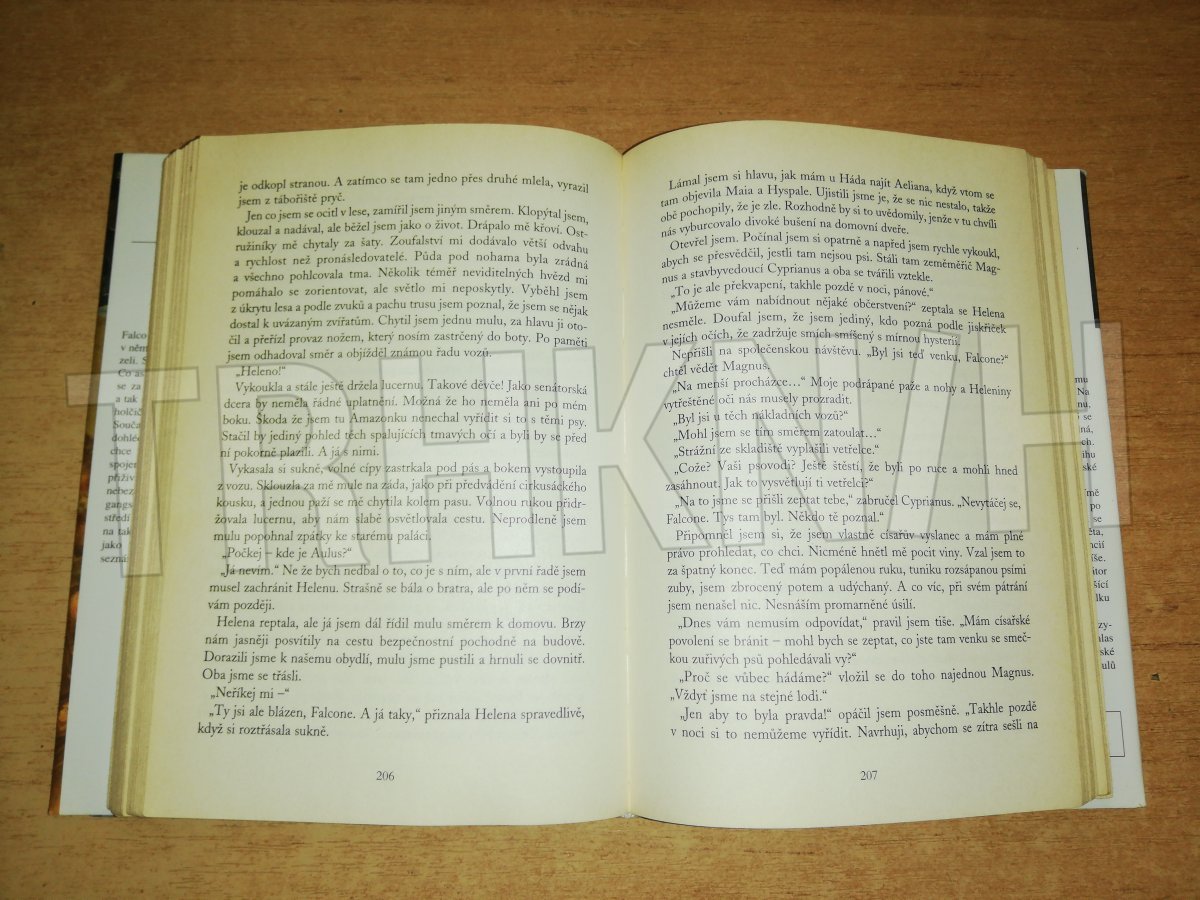 je odkopl stranou. A zatímco se tam jedno přes druhé mlela, vyrazil
jsem z tábořiště pryč.
Jen co jsem se ocitl v lese, zamířil jsem jiným směrem. Klopýtal jsem,
klouzal a nadával, ale běžel jsem jako o život. Drápalo mě křoví. Ost-
ružiníky mě chytaly za šaty. Zoufalství mi dodávalo větší odvahu
a rychlost než pronásledovatelé. Půda pod nohama byla zrádná
a všechno pohlcovala tma. Několik téměř neviditelných hvězd mi
pomáhalo se zorientovat, ale světlo mi neposkytly. Vyběhl jsem
z úkrytu lesa a podle zvuků a pachu trusu jsem poznal, že jsem se nějak
dostal k uvázaným zvířatům. Chytil jsem jednu mulu, za hlavu ji oto-
čil a přeřízl provaz nožem, který nosím zastrčený do boty. Po paměti
jsem odhadoval směr a objížděl známou řadu vozů.
„Heleno!“
Vykoukla a stále ještě držela lucernu. Takové děvče! Jako senátorská
dcera by neměla řádné uplatnění. Možná že ho neměla ani po mém
boku. Škoda že jsem tu Amazonku nenechal vyřídit si to s těmi psy.
Stačil by jediný pohled těch spalujících tmavých očí a byli by se před
ní pokorně plazili. A já s nimi.
Vykasala si sukně, volné cípy zastrkala pod pás a bokem vystoupila
z vozu. Sklouzla za mě mule na záda, jako při předvádění cirkusáckého
kousku, a jednou paží se mě chytila kolem pasu. Volnou rukou přidr-
žovala lucernu, aby nám slabě osvětlovala cestu. Neprodleně jsem
mulu popohnal zpátky ke starému paláci.
„Počkej – kde je Aulus?“
„Já nevím.“ Ne že bych nedbal o to, co je s ním, ale v první řadě jsem
musel zachránit Helenu. Strašně se bála o bratra, ale po něm se podí-
vám později.
Helena reptala, ale já jsem dál řídil mulu směrem k domovu. Brzy
nám jasněji posvítily na cestu bezpečnostní pochodně na budově.
Dorazili jsme k našemu obydlí, mulu jsme pustili a hrnuli se dovnitř.
Oba jsme se třásli.
„Neříkej mi –“
„Ty jsi ale blázen, Falcone. A já taky,“ přiznala Helena spravedlivě,
když si roztřásala sukně.
206
Lámal jsem si hlavu, jak mám u Háda najít Aeliana, když vtom se
tam objevila Maia a Hyspale. Ujistili jsme je, že se nic nestalo, takže
obě pochopily, že je zle. Rozhodně by si to uvědomily, jenže v tu chvíli
nás vyburcovalo divoké bušení na domovní dveře.
Otevřel jsem. Počínal jsem si opatrně a napřed jsem rychle vykoukl,
abych se přesvědčil, jestli tam nejsou psi. Stáli tam zeměměřič Mag-
nus a stavbyvedoucí Cyprianus a oba se tvářili vztekle.
„To je ale překvapení, takhle pozdě v noci, pánové.“
„Můžeme vám nabídnout nějaké občerstvení?“ zeptala se Helena
nesměle. Doufal jsem, že jsem jediný, kdo pozná podle jiskřiček
v jejích očích, že zadržuje smích smíšený s mírnou hysterií.
Nepřišli na společenskou návštěvu. „Byl jsi teď venku, Falcone?“
chtěl vědět Magnus.
„Na menší procházce…“ Moje podrápané paže a nohy a Heleniny
vytřeštěné oči nás musely prozradit.
„Byl jsi u těch nákladních vozů?“
„Mohl jsem se tím směrem zatoulat…“
„Strážní ze skladiště vyplašili vetřelce.“
„Cože? Vaši psovodi? Ještě štěstí, že byli po ruce a mohli hned
zasáhnout. Jak to vysvětlují ti vetřelci?“
„Na to jsme se přišli zeptat tebe,“ zabručel Cyprianus. „Nevytáčej se,
Falcone. Tys tam byl. Někdo tě poznal.“
Připomněl jsem si, že jsem vlastně císařův vyslanec a mám plné
právo prohledat, co chci. Nicméně hnětl mě pocit viny. Vzal jsem to
za špatný konec. Teď mám popálenou ruku, tuniku rozsápanou psími
zuby, jsem zbrocený potem a udýchaný. A co víc, při svém pátrání
jsem nenašel nic. Nesnáším promarněné úsilí.
„Dnes vám nemusím odpovídat,“ pravil jsem tiše. „Mám císařské
povolení se bránit – mohl bych se zeptat, co jste tam venku se smeč-
kou zuřivých psů pohledávali vy?“
„Proč se vůbec hádáme?“ vložil se do toho najednou Magnus.
„Vždyť jsme na stejné lodi.“
„Jen aby to byla pravda!“ opáčil jsem posměšně. „Takhle pozdě
v noci si to nemůžeme vyřídit. Navrhuji, abychom se zítra sešli na
207
TRHKNIH